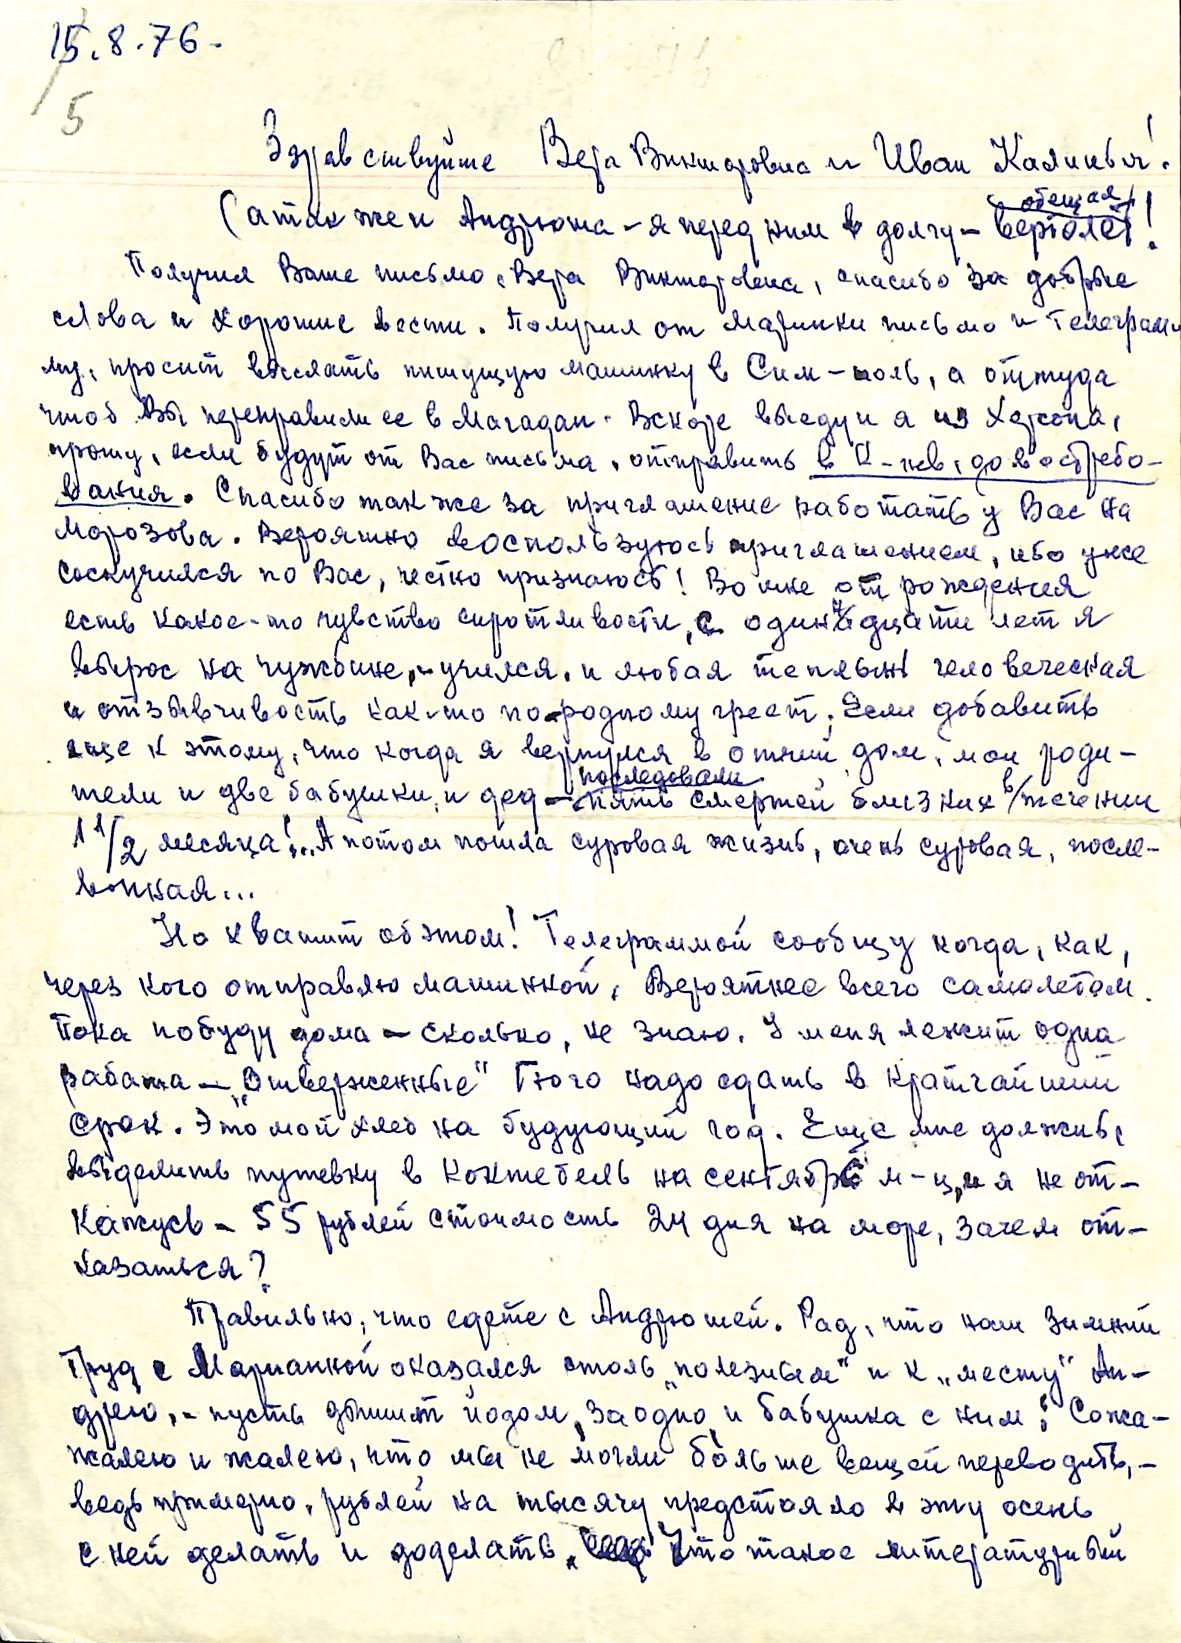 15.8.76.
5
Здравствуйте Вера Викторовна и Иван Калиныч!
(а также и Андрюша – я перед ним в долгу –
обещал
вертолёт!
Получил Ваше письмо, Вера Викторовна, спасибо за добрые
слова и хорошие вести. Получил от Маринки письмо и телеграм-
му, просит выслать пишущую машинку в Сим-поль, а оттуда
чтоб Вы переправили ее в Магадан. Вскоре выеду и я из Херсона,
прошу, если будут от Вас письма, отправить в К-нев, до востребо-
вания. Спасибо также за приглашение работать у Вас на
Морозова. Вероятно воспользуюсь приглашением, ибо уже
соскучился по Вас, честно признаюсь! Во мне от рождения
есть какое-то чувство сиротливости, с одиннадцати лет я
вырос на чужбине, – учился. и любая теплынь человеческая
и отзывчивость как-то по-родному греет. Если добавить
еще к этому, что когда я вернулся в отчий дом, мои роди-
последовали
тели и две бабушки, и дед – пять смертей близких в течении
1 1/2 месяца!.. А потом пошла суровая жизнь, очень суровая, после-
военная...
Но хватит об этом! Телеграммой сообщу когда, как,
через кого отправляю машинкой, Вероятнее всего самолетом.
Пока побуду дома – сколько, не знаю. У меня лежит одна
работа – „Отверженные" Гюго надо сдать в кратчайший
срок. Это мой хлеб на будующий год. Еще мне должны
выделить путевку в Коктебель на сентябрь м-ц, и я не от-
кажусь – 55 рублей стоимость 24 дня на море, зачем от-
казаться?
Правильно, что едете с Андрюшей. Рад, что наш зимний
труд с Марианной оказался столь „полезным" и к „месту" Ан-
дрею, – пусть дышит йодом, заодно и бабушка с ним! Сожа-
жалею и жалею, что мы не могли больше вещей переводить, –
ведь примерно, рублей на тысячу предстояло в эту осень
с ней делать и доделать. Что такое литературный